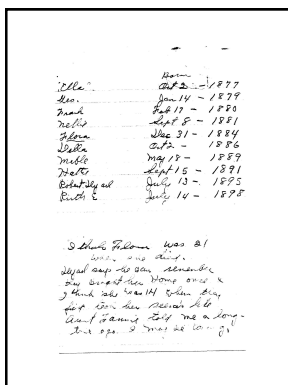 Born
"Ella" Oct 2 - 1877
Geo. Jan 14 - 1879
Frank Feb 17 - 1880
Nellie Sept 8 - 1881
Flora Dec 31 - 1884
Della Oct 2 - 1886
Mible May 18 - 1889
Hattie Sept 15 - 1891
Robert Lloyd July 13 - 1895
Ruth E July 14 - 1898
I think Flora was 21
when she died.
says he can remember
her home once &
I think she was 14 when they
first her
Aunt Fannie told me a long
time ago. I may be wrong.